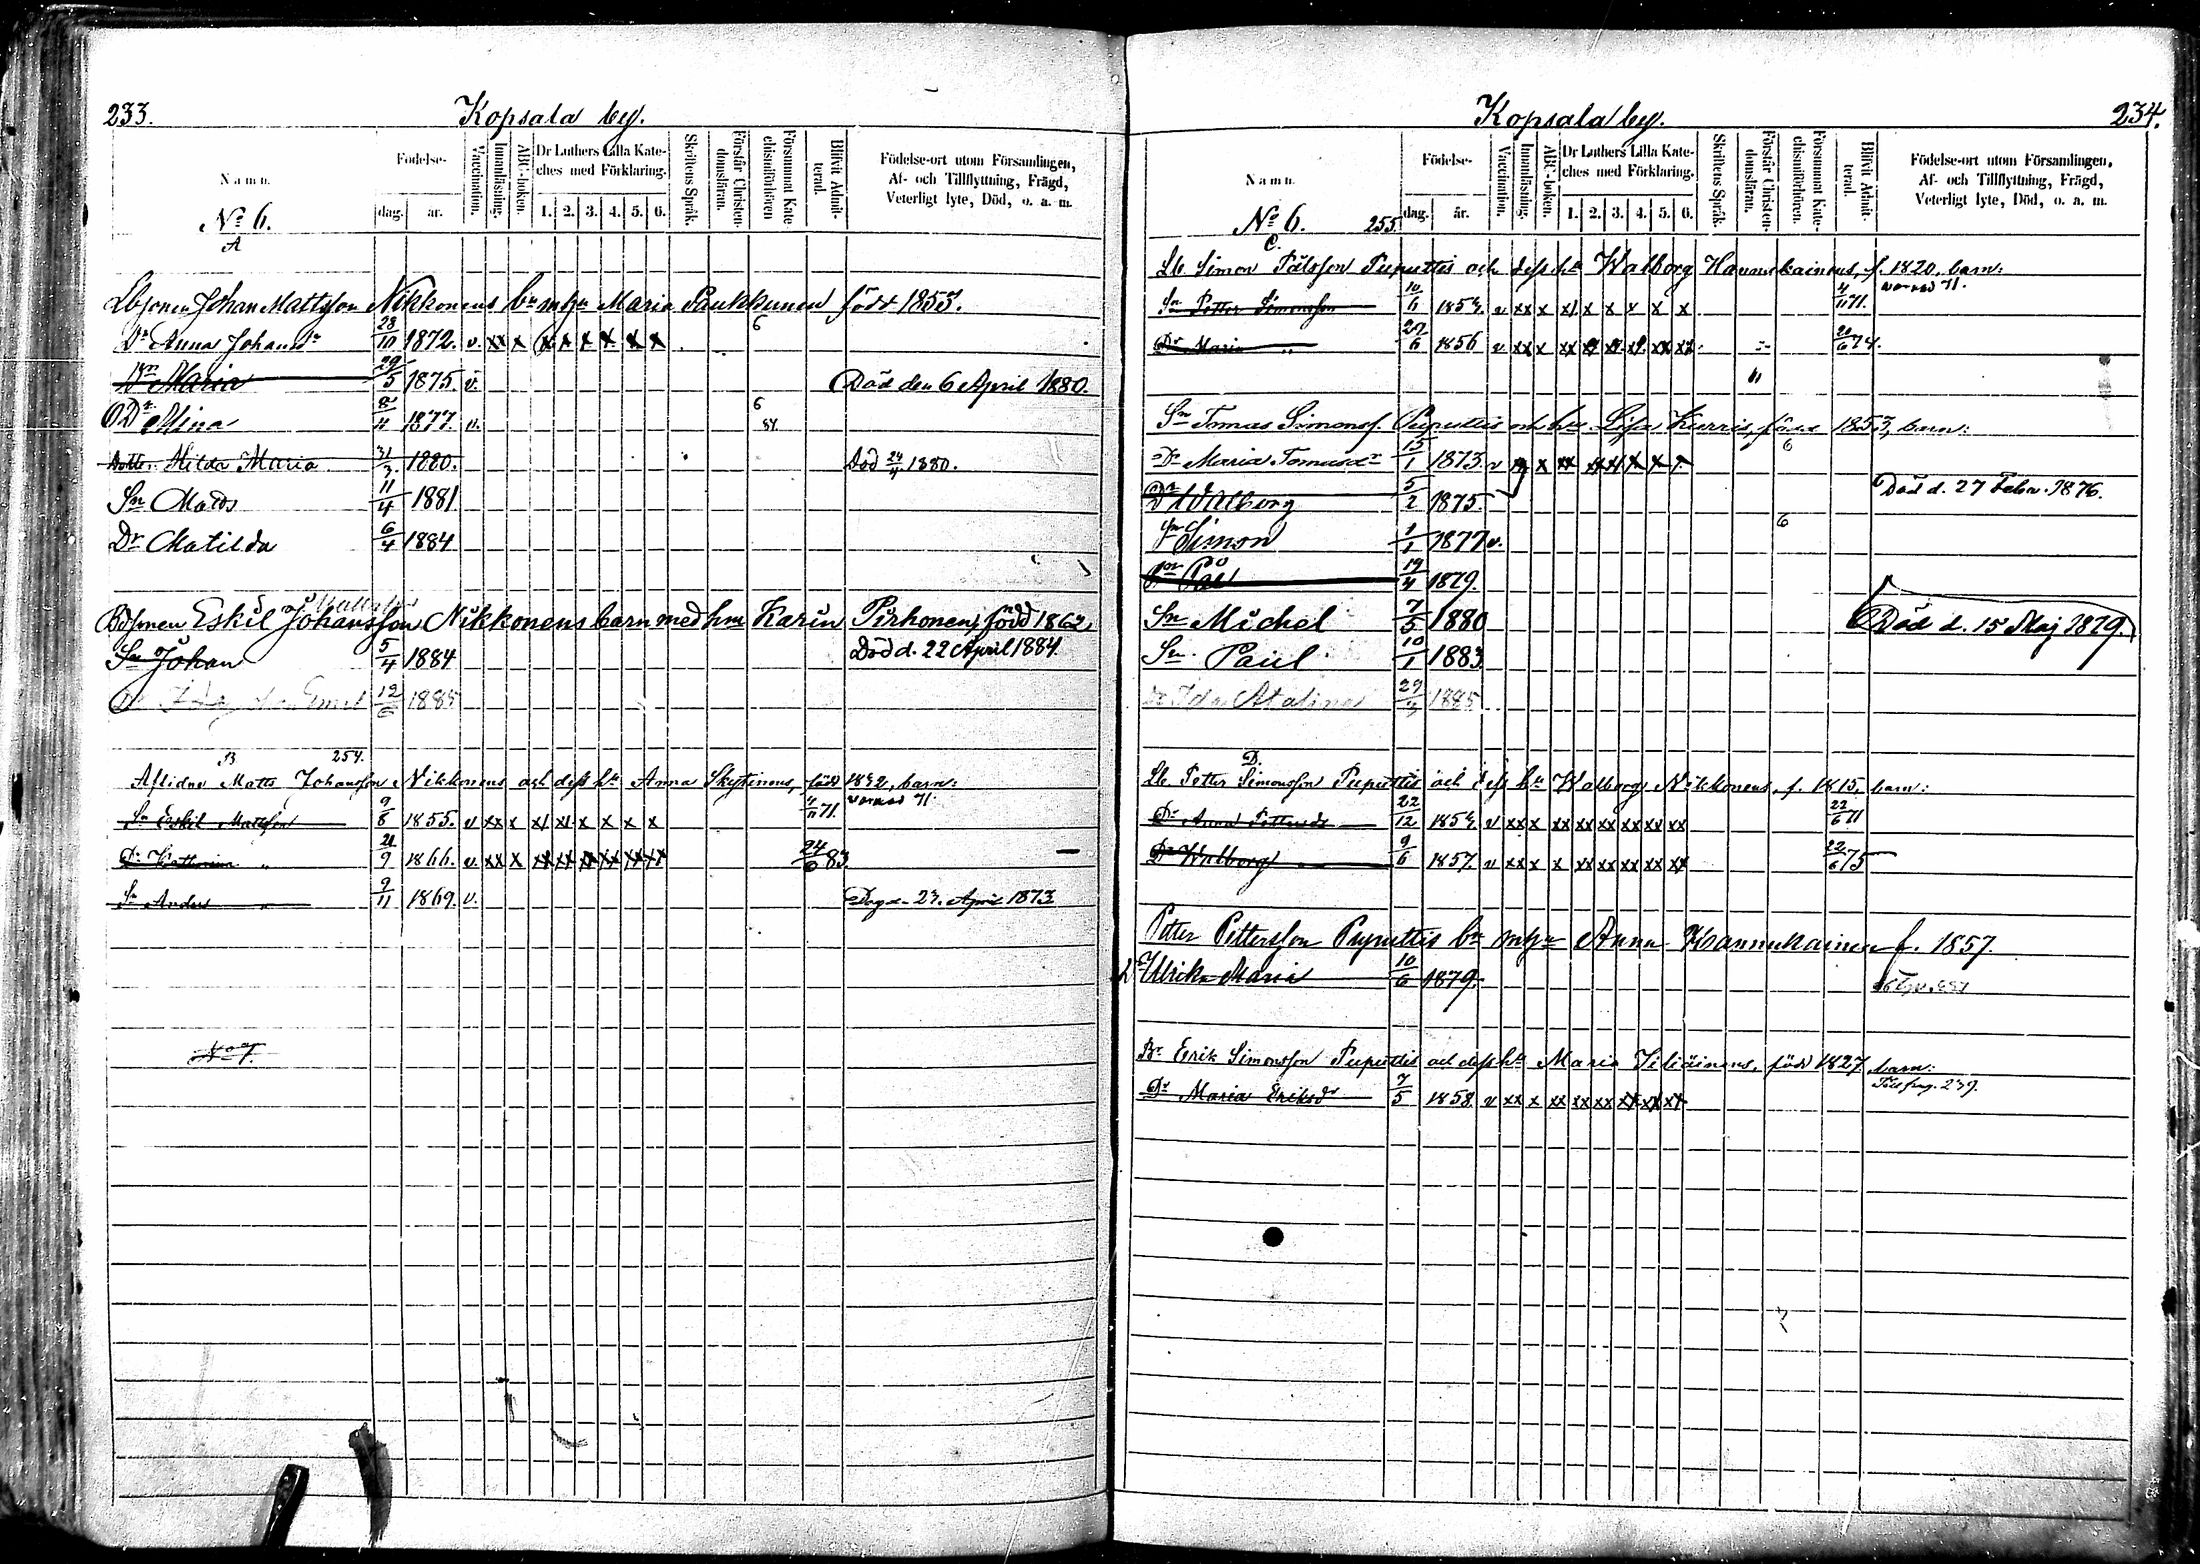 233.
Kopsala by.
Namn.
Födelse-
dag. år.
Vaccination.
Innanläsning.
ABC-boken.
Dr Luthers Lilla Kate-
ches med Förklaring.
1. 2. 3. 4. 5. 6.
Skriftens Språk.
Förstår Christen-
domsläran.
Försummat Kate-
chismiförhören
Blifvit Admit-
terad.
Födelse-ort utom Församlingen,
Af- och Tillflyttning, Frägd,
Veterligt lyte, Död, o. a. m.
No 6.
A
Lbsonen Johan Mattsson Nikkonens bn m hu Maria Paukkunen född 1853.
Dr Anna Johansdr 28/10 1872. v. xx x x x x x x x 6
Dr Maria 29/5 1875. v. Död den 6 April 1880.
Dr Mina 8/4 1877. v. 6 84
Dotter Hilda Maria 31/3 1880. Död 24/4 1880.
Sn Matts 11/4 1881
Dr Matilda 6/4 1884
Eskil Johansson Nikkonens barn med hm Karin Pirhonen, född 1862
Sn Johan 5/4 1884 Död d. 22 April 1884.
12/6 1885
B 254.
Aflidne Matts Johansson Nikkonens och dess hu Anna Skyttinens, född 1832, barn:
Sn Eskil Mattsson 9/8 1855. v xx x x x x x x x 4/11 71.
Dr Katharina " 21/9 1866. v xx x xx xx xx xx xx xx 24/6 83. —
Sn Anders " 9/11 1869. v. Dog d. 23. April 1873
No 7.
Kopsala by.
234.
Namn.
Födelse-
dag. år.
Vaccination.
Innanläsning.
ABC-boken.
Dr Luthers Lilla Kate-
ches med Förklaring.
1. 2. 3. 4. 5. 6.
Skriftens Språk.
Förstår Christen-
domsläran.
Försummat Kate-
chismiförhören.
Blifvit Admit-
terad.
Födelse-ort utom Församlingen,
Af- och Tillflyttning, Frägd,
Veterligt lyte, Död, o. a. m.
No 6. 255.
C.
Lb. Simon Pålsson Puputtis och dess hu Walborg Hannukainens, f. 1820, barn:
Sn Petter Simonsson 10/6 v xx x x x x x x x 4/11 71.
Dr Maria " 27/6 1856 v xx x 20/6 74.
Sn Tomas Simonss. Puputtis och hu Lisa Kurris, född 1853, barn:
Dr Maria Tomasdr 15/1 1873. v 6
Dr Walborg 5/2 1875. Död d. 27 Febr. 1876.
Sn Simon 1/1 1877 v. 6
Sn Pål 19/4 1879.
Sn Michel 7/5 1880 Död d. 15 Maj 1879.
Sn Paul 10/1 1883
Dr Ida Atalina 1885
D.
Lb. Petter Simonsson Puputtis och dess hu Walborg Nikkonens, f. 1815, barn:
Dr Anna Pettersdr 22/12 v xx x xx xx xx xx xx xx 22/6 71
Dr Walborg " 9/6 1857. v xx x x xx xx xx xx xx 22/6 75
Petter Pettersson Puputtis bn m hu Anna Hannukainen f. 1857.
Dr Ulrika Maria 10/6 1879.
Br Erik Simonsson Puputtis och dess hu Maria född 1827, barn:
Dr Maria Eriksdr 7/5 1858. v xx x xx xx xx xx xx xx